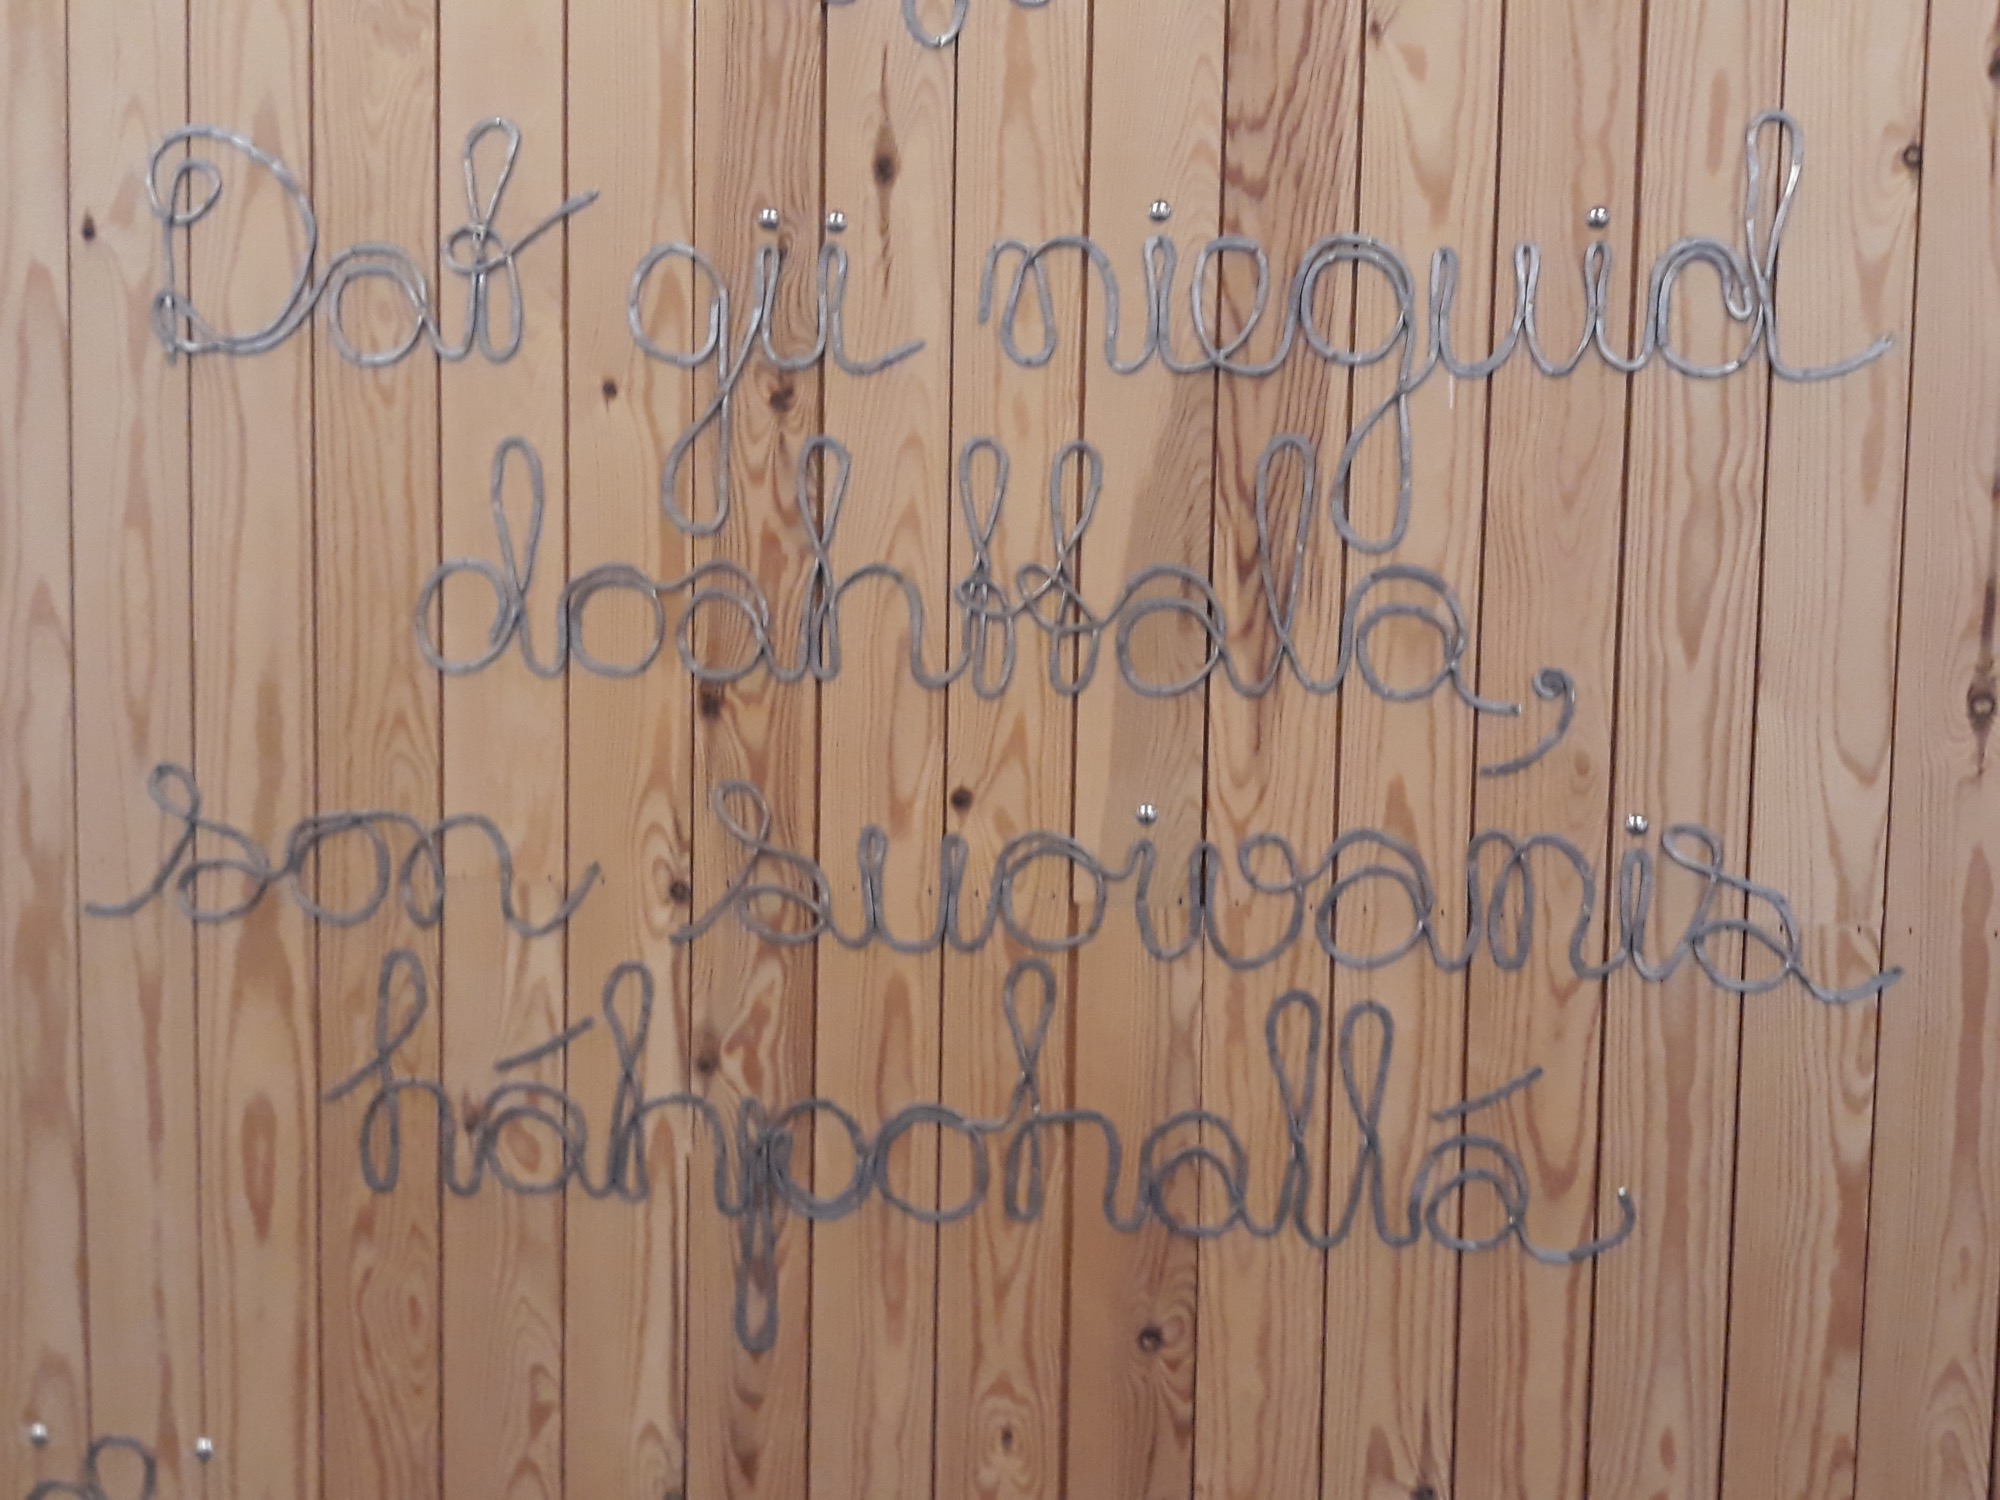 Dat gii nieguid
doahttala,
son suoivanis
háhpohallá